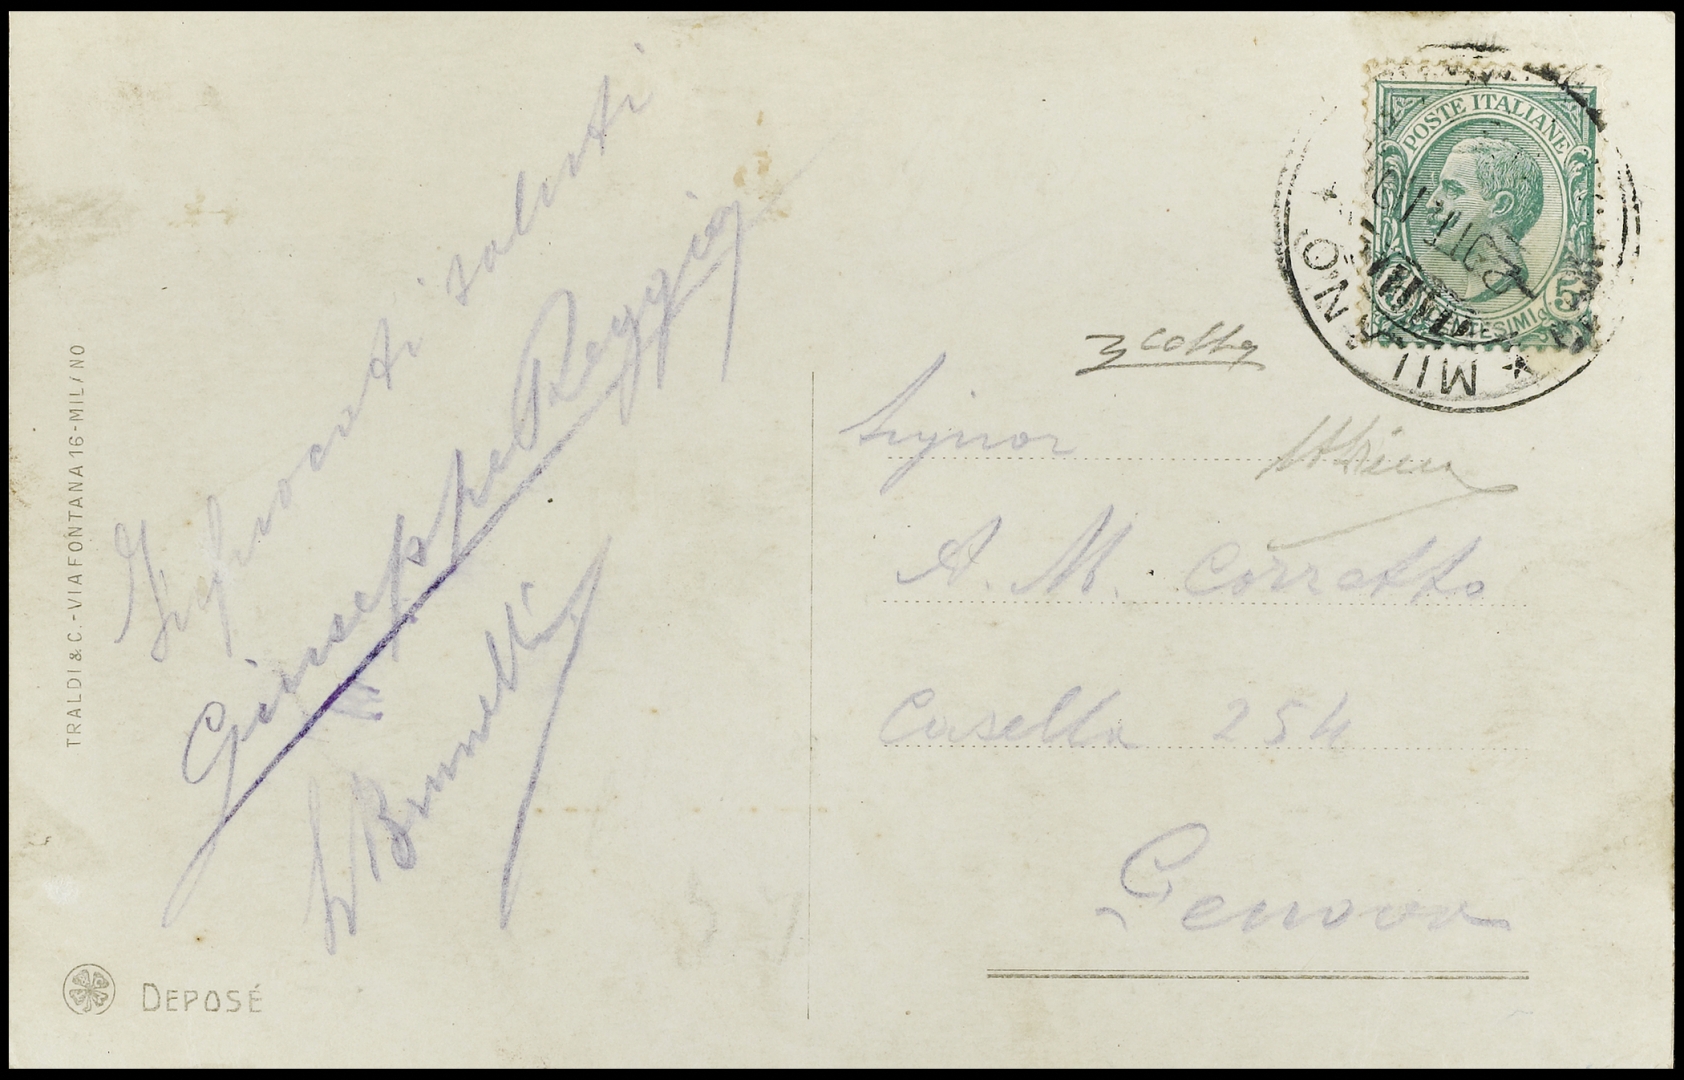 TRALDI & C. - VIA FONTANA 16 - MILANO
Infuocati saluti
Giuseppe Reggio
Brunelli
DEPOSÉ
POSTE ITALIANE
5
CENTESIMI
MILANO
Signor
A. M. Corretto
Casella 254
Genova